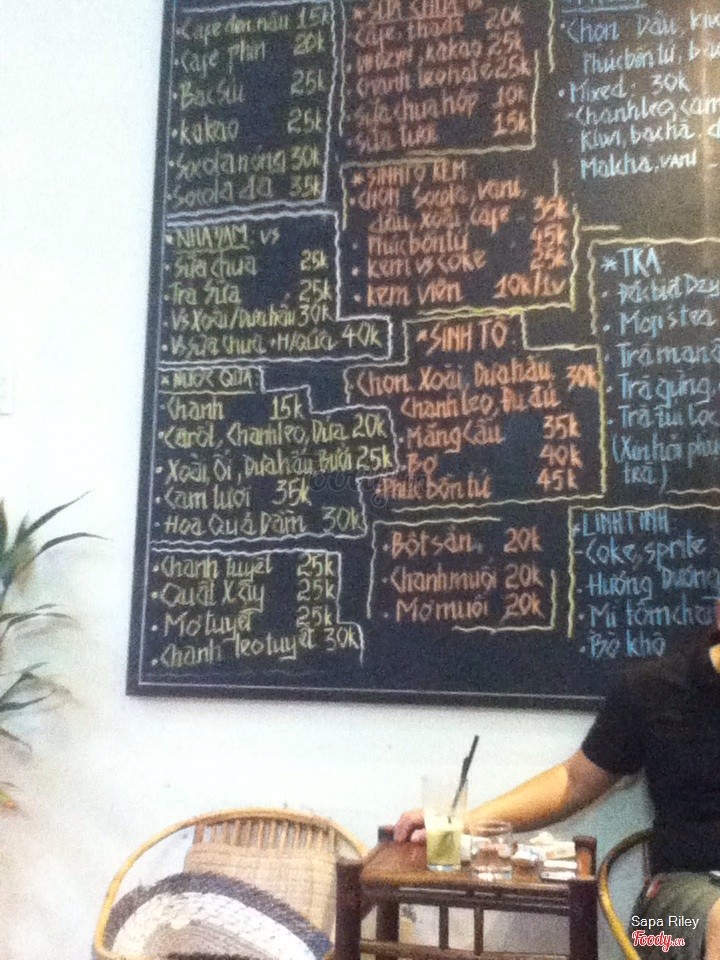 • Cafe đen, nâu 15k
• Cafe phin 20k
• Bạc sỉu 25k
• Kakao 25k
• Socola nóng 30k
• Socola đá 35k
* NHA ĐAM: vs
• Sữa chua 25k
• Trà Sữa 25k
• Vs Xoài/Dưa hấu 30k
• Vs sữa chua + H/quả 40k
* NƯỚC QUẢ
• Chanh 15k
Carôt, Chanh leo, Dứa 20k
• Xoài, ổi, Dưa hấu, Bưởi 25k
• Cam tươi 35k
• Hoa Quả Dầm 30k
• Chanh tuyết 25k
• Quất Xay 25k
• Mơ tuyết 25k
• Chanh leo tuyết 30k
* SỮA CHUA
Cafe, thạch 20k
kakao 25k
25k
Sữa chua hộp 10k
15k
* SINH TỐ KEM
• Chọn Socola, vani,
dâu, Xoài, Cafe 35k
• Phúc bồn tử 45k
• Kem vs coke 25k
• Kem viên 10k/1v
* SINH TỐ
Chọn Xoài, Dưa hấu 30k
Chanh leo, Đu đủ
• Mãng Cầu 35k
• Bơ 40k
• Phúc bồn tử 45k
• Bột sắn 20k
• Chanh muối 20k
• Mơ muối 20k
• Chọn Dâu, kiwi
Phúc bồn tử,
• Mixed: 30k
Chanh leo, cam
Kiwi, bạc hà
Matcha, vani
* TRÀ
• Đặc biệt
• Mojstea
• Trà
• Trà gừng
• Trà túi lọc
(Xin hỏi
trà)
* LINH TINH
• Coke, sprite
• Hướng Dương
• Mì tôm
• Bò khô
Sapa Riley
Foody.vn